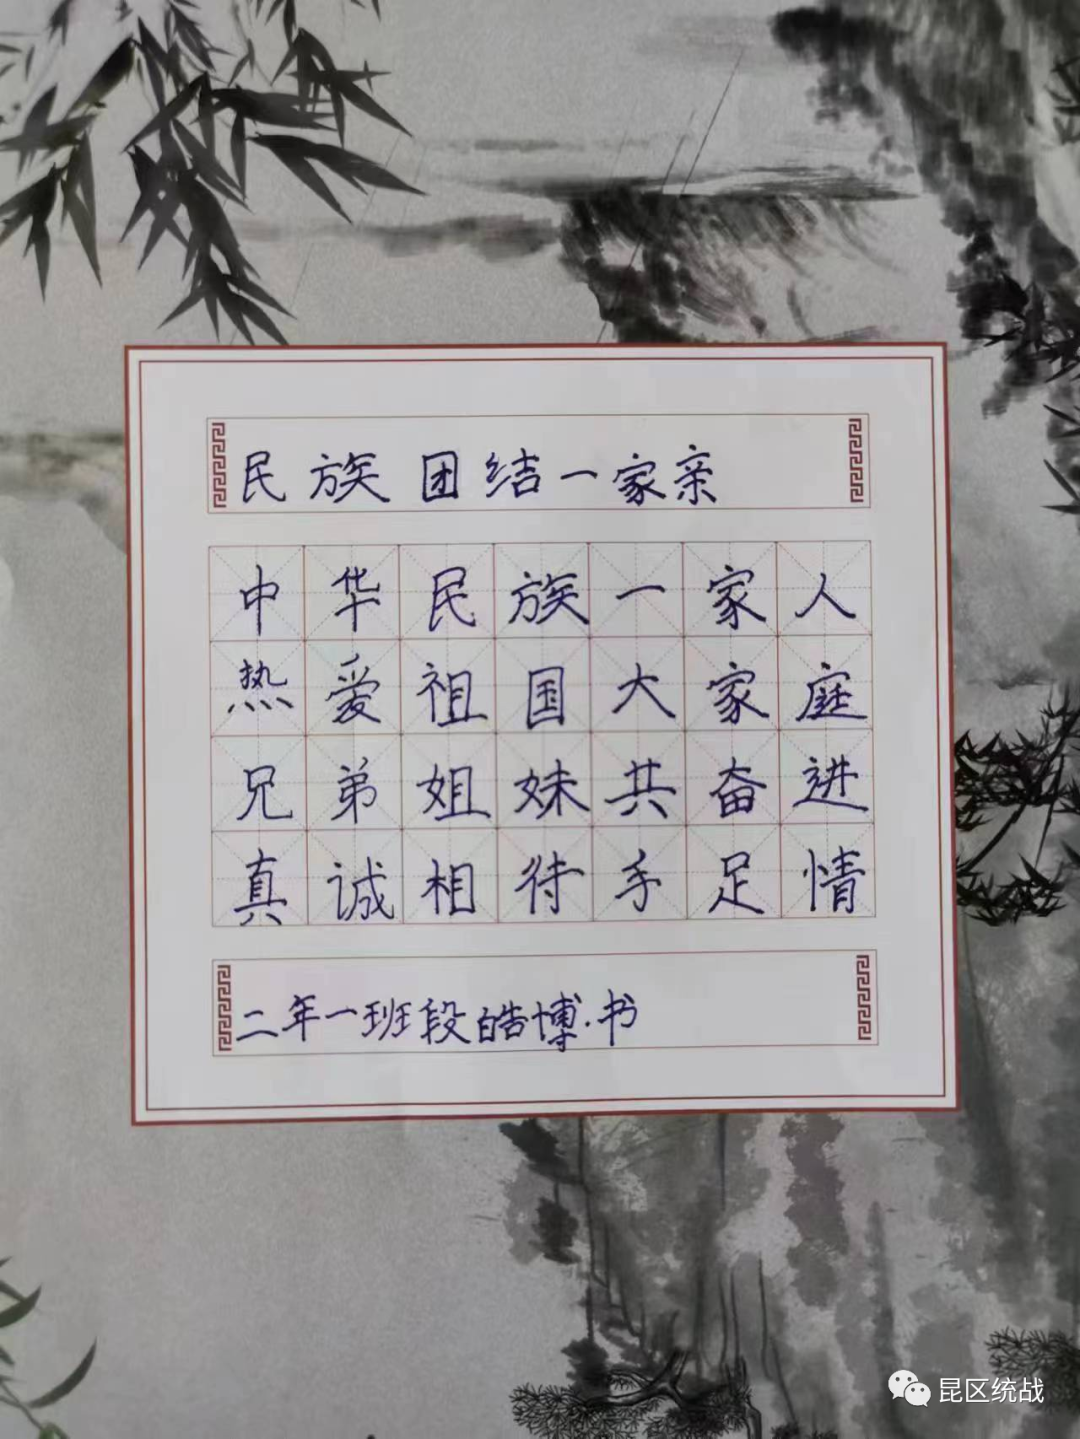 民族团结一家亲
中华民族一家人
热爱祖国大家庭
兄弟姐妹共奋进
真诚相待手足情
二年一班段皓博.书
昆区统战